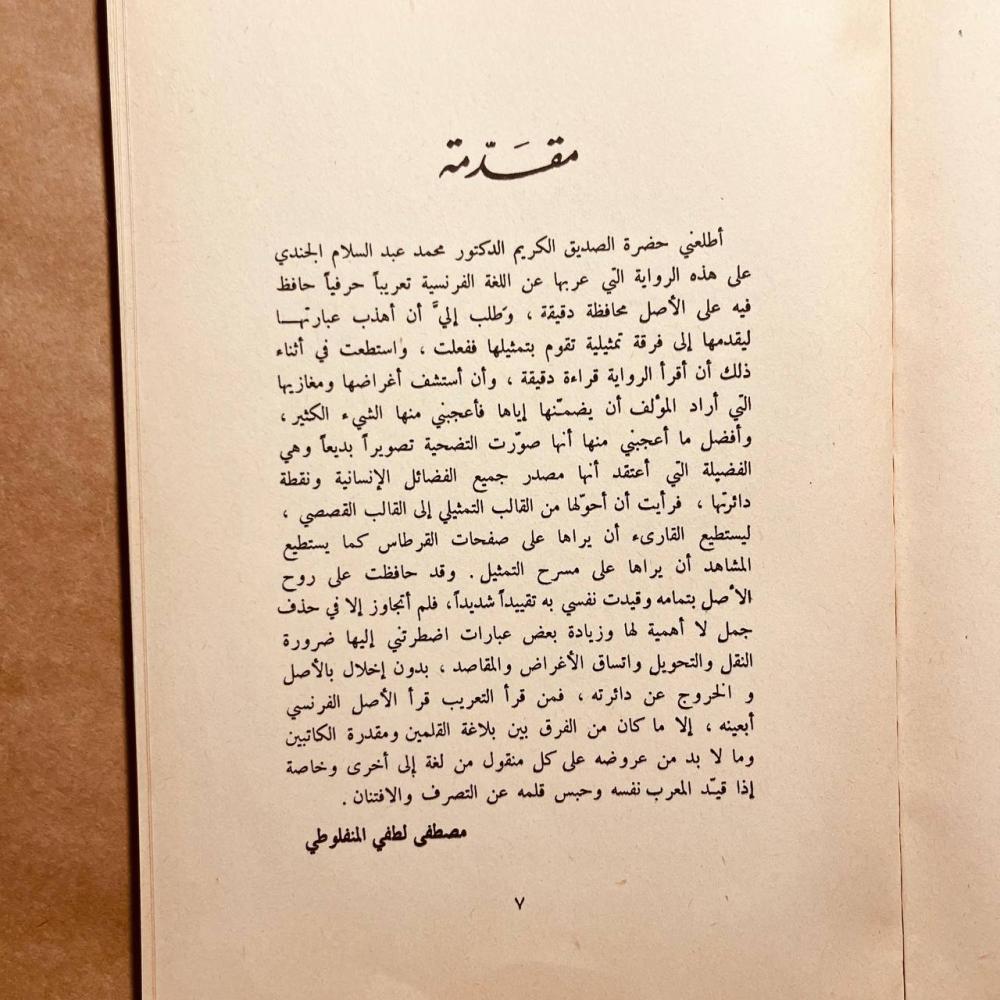 مقَدّمة
أطلعني حضرة الصديق الكريم الدكتور محمد عبد السلام الجندي
على هذه الرواية التي عربها عن اللغة الفرنسية تعريباً حرفياً حافظ
فيه على الأصل محافظة دقيقة ، وَطلب إليَّ أن أهذب عبارتهـا
ليقدمها إلى فرقة تمثيلية تقوم بتمثيلها ففعلت ، واستطعت في أثناء
ذلك أن أقرأ الرواية قراءة دقيقة ، وأن أستشف أغراضها ومغازيها
التي أراد المؤلف أن يضمـّنها إياها فأعجبني منها الشيء الكثير ،
وأفضل ما أعجبني منها أنها صوّرت التضحية تصويراً بديعاً وهي
الفضيلة التي أعتقد أنها مصدر جميع الفضائل الإنسانية ونقطة
دائرتها ، فرأيت أن أحوّلها من القالب التمثيلي إلى القالب القصصي ،
ليستطيع القارىء أن يراها على صفحات القرطاس كما يستطيع
المشاهد أن يراها على مسرح التمثيل . وقد حافظت على روح
الأصل بتمامه وقيدت نفسي به تقييداً شديداً ، فلم أتجاوز إلا في حذف
جمل لا أهمية لها وزيادة بعض عبارات اضطرتني إليها ضرورة
النقل والتحويل واتساق الأغراض والمقاصد ، بدون إخلال بالأصل
و الخروج عن دائرته ، فمن قرأ التعريب قرأ الأصل الفرنسي
أبعينه ، إلا ما كان من الفرق بين بلاغة القلمين ومقدرة الكاتبين
وما لا بد من عروضه على كل منقول من لغة إلى أخرى وخاصة
إذا قيـّد المعرب نفسه وحبس قلمه عن التصرف والافتنان .
مصطفى لطفي المنفلوطي
٧